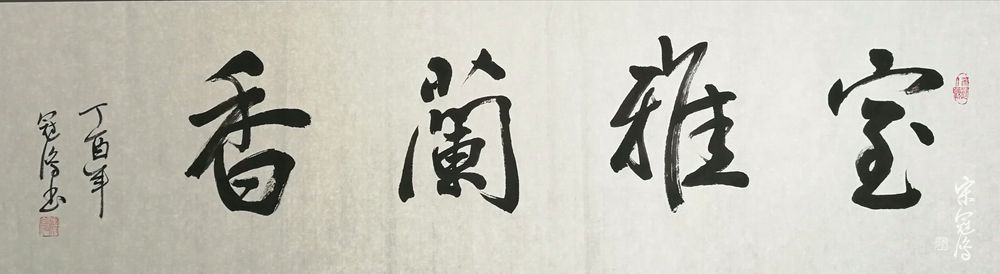 室雅蘭香
丁酉年
冠浴书
宋冠浴